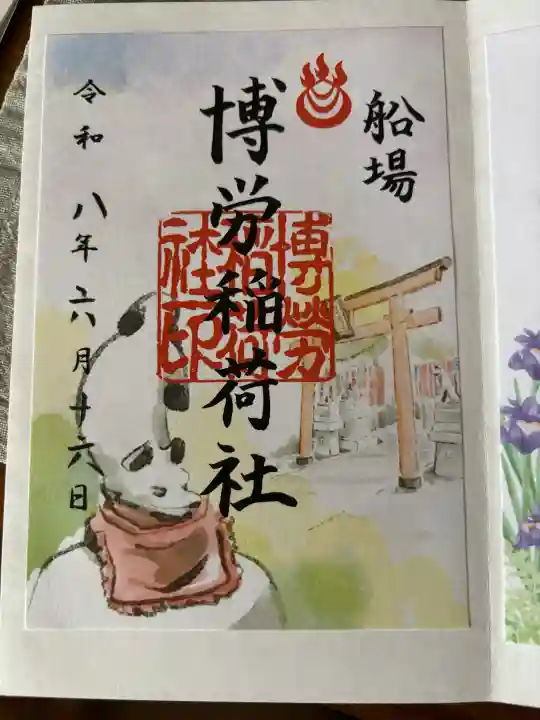 船場
博労稲荷社
博勞
稲荷
社印
令和八年六月十六日